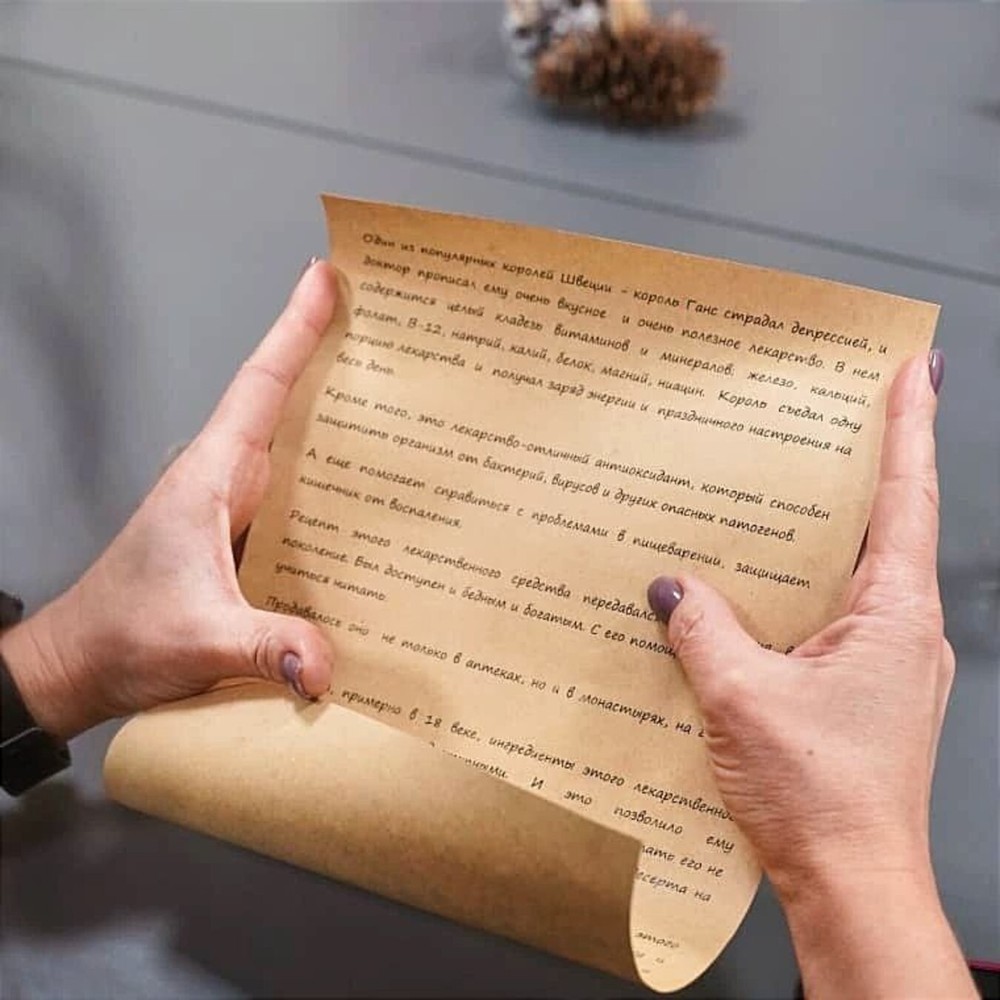 Один из популярных королей Швеции - король Ганс страдал депрессией, и
доктор прописал ему очень вкусное и очень полезное лекарство. В нем
содержится целый кладезь витаминов и минералов: железо, кальций,
фолат, В-12, натрий, калий, белок, магний, ниацин. Король съедал одну
порцию лекарства и получал заряд энергии и праздничного настроения на
весь день.
Кроме того, это лекарство-отличный антиоксидант, который способен
защитить организм от бактерий, вирусов и других опасных патогенов.
А еще помогает справиться с проблемами в пищеварении, защищает
кишечник от воспаления.
Рецепт этого лекарственного средства передавался в
поколение. Был доступен и бедным и богатым. С его
учиться читать.
Продавалось оно не только в аптеках, но и в монастырях, на
примерно в 18 веке, ингредиенты этого лекарственного
И это позволило ему
его не
десерта на
этого
и